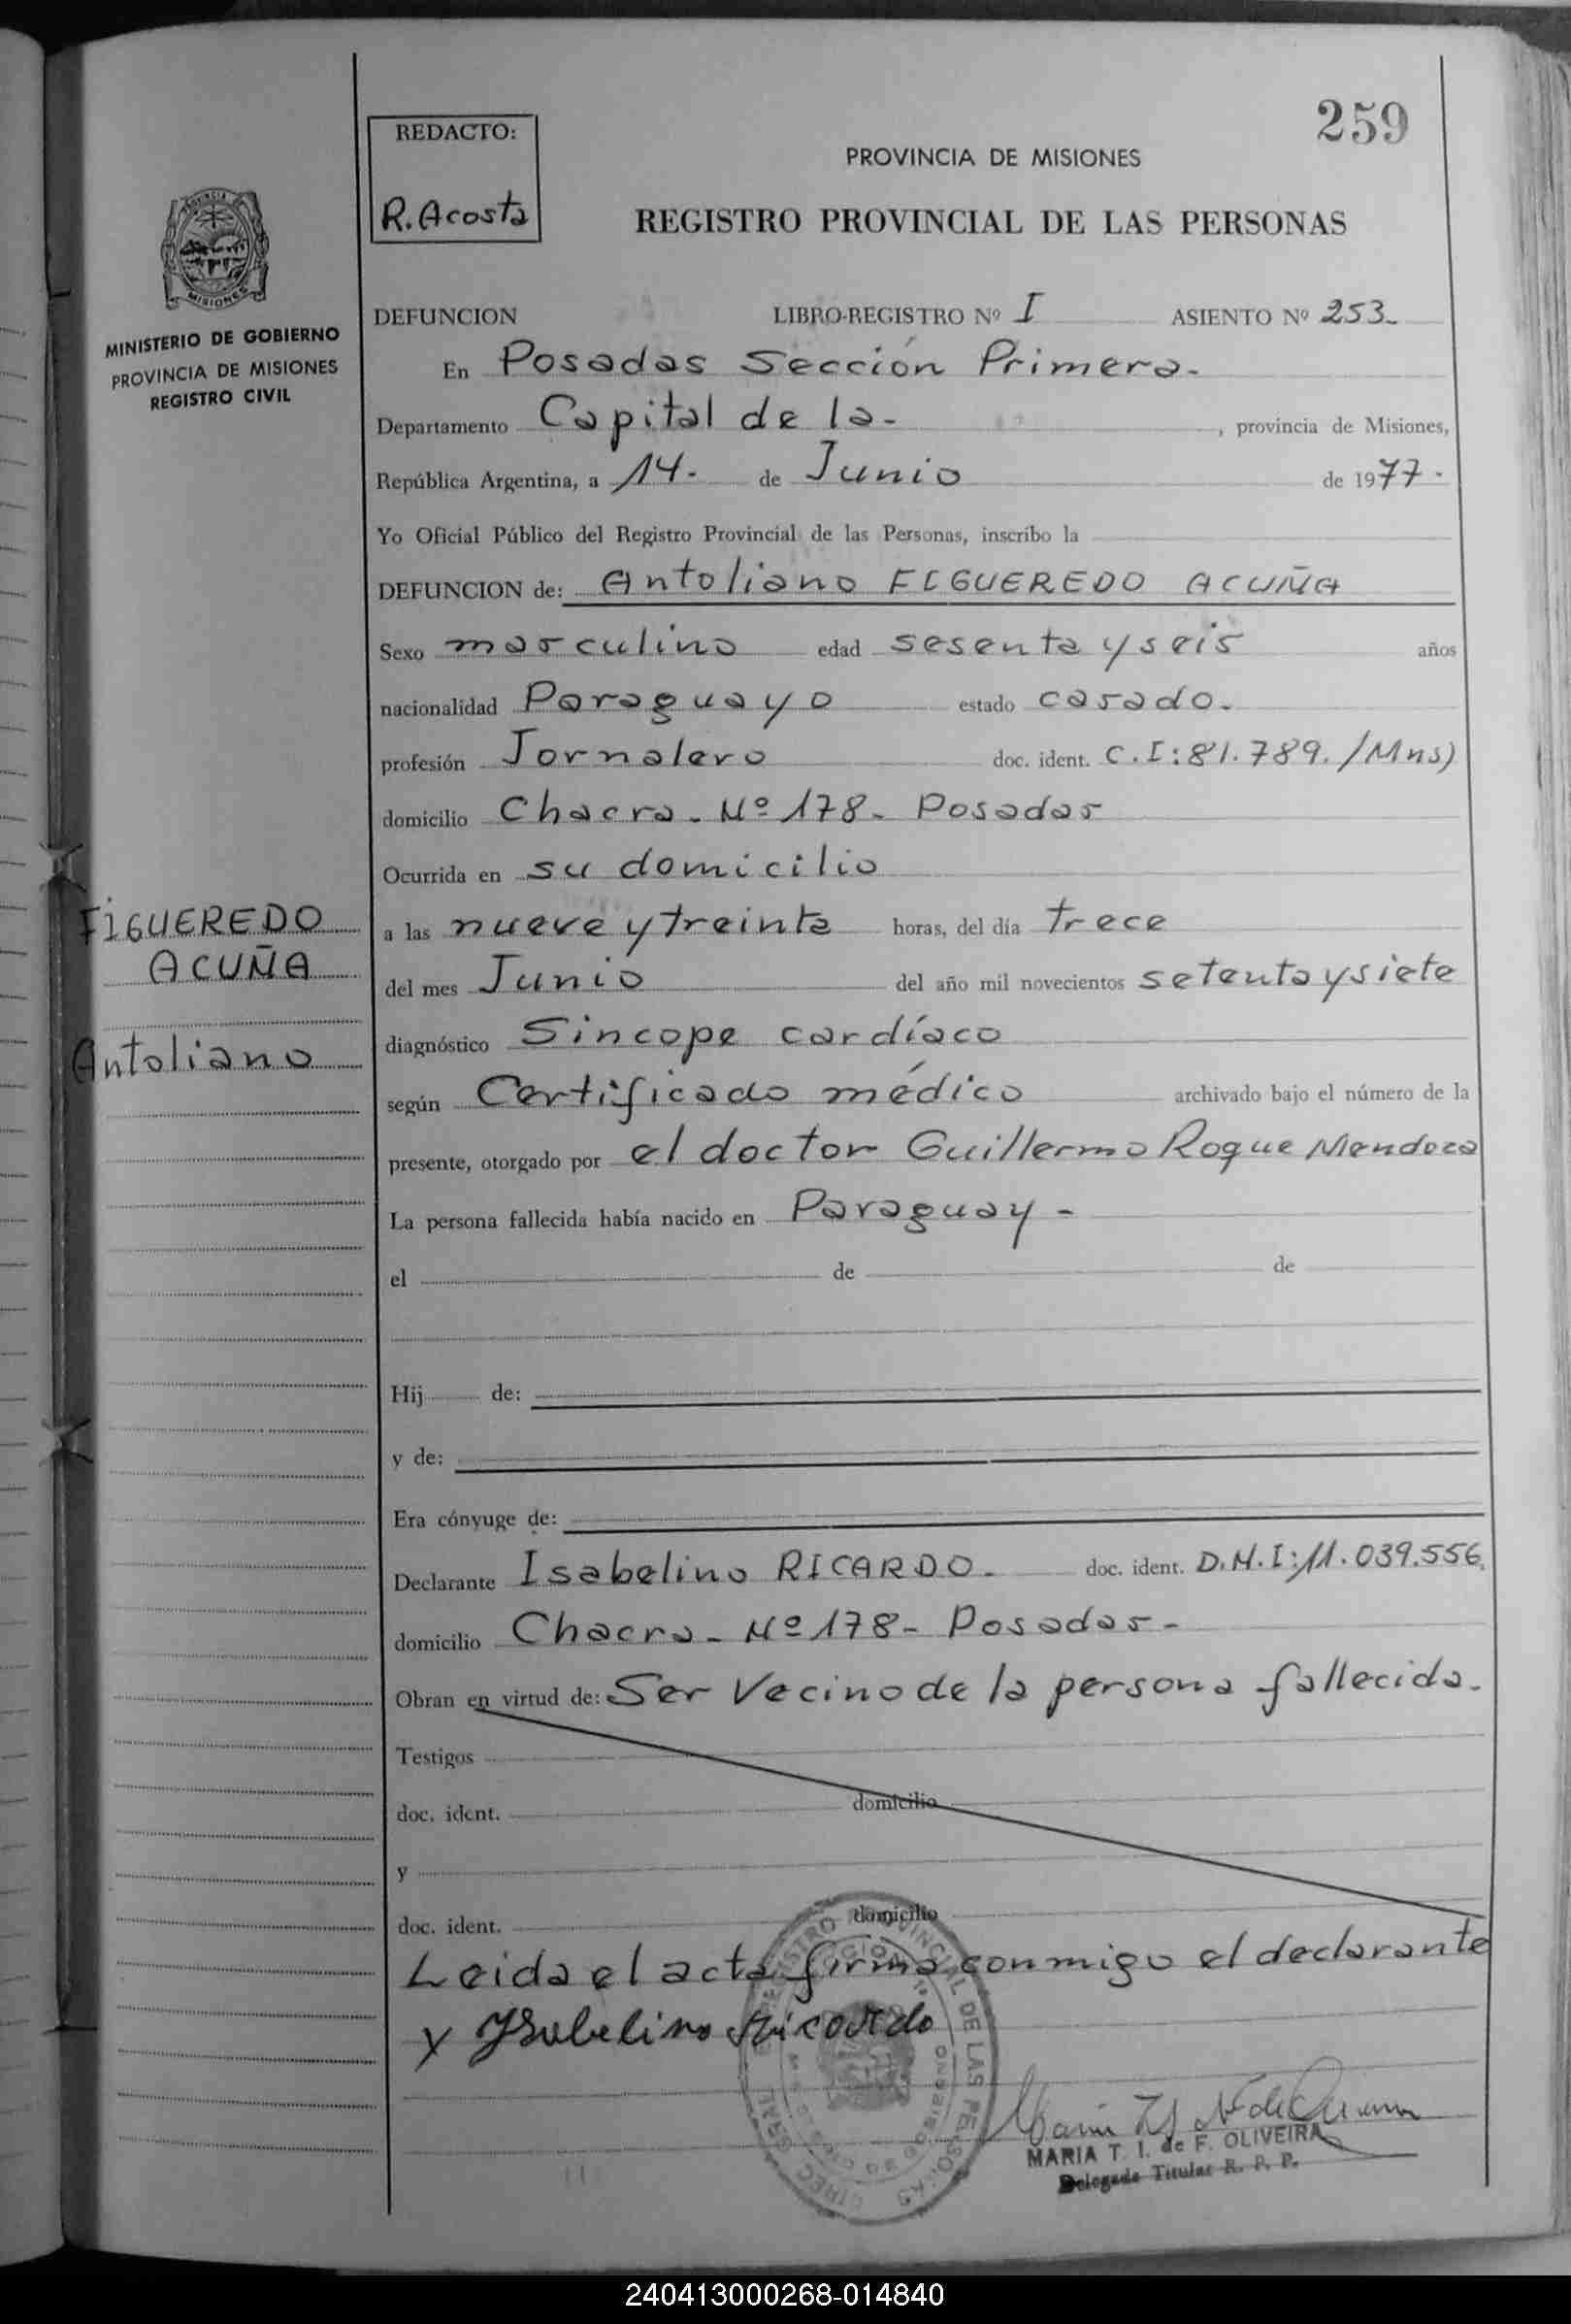 259
REDACTO:
R. Acosta
PROVINCIA DE MISIONES
REGISTRO PROVINCIAL DE LAS PERSONAS
PROVINCIA
MISIONES
MINISTERIO DE GOBIERNO
PROVINCIA DE MISIONES
REGISTRO CIVIL
DEFUNCION LIBRO-REGISTRO Nº I ASIENTO Nº 253.
En Posadas Sección Primera-
Departamento Capital de la- , provincia de Misiones,
República Argentina, a 14- de Junio de 1977-
Yo Oficial Público del Registro Provincial de las Personas, inscribo la
DEFUNCION de: Antoliano FIGUEREDO ACUÑA
Sexo masculino edad sesenta y seis años
nacionalidad Paraguayo estado casado.
profesión Jornalero doc. ident. C.I:81.789./Mns)
domicilio Chacra- Nº 178- Posadas
Ocurrida en su domicilio
FIGUEREDO
ACUÑA
Antoliano
a las nueve y treinta horas, del día trece
del mes Junio del año mil novecientos setenta y siete
diagnóstico Sincope cardíaco
según Certificado médico archivado bajo el número de la
presente, otorgado por el doctor Guillermo Roque Mendoza
La persona fallecida había nacido en Paraguay-
el de de
Hij de:
y de:
Era cónyuge de:
Declarante Isabelino RICARDO- doc. ident. D.N.I:11.039.556.
domicilio Chacra- Nº 178- Posadas-
Obran en virtud de: Ser Vecino de la persona fallecida.
Testigos
doc. ident. domicilio
y
doc. ident. domicilio
Leida el acta firma conmigo el declarante
y Ysabelino Ricardo
MARIA T. I. de F. OLIVEIRA
Delegada Titular R. P. P.
240413000268-014840